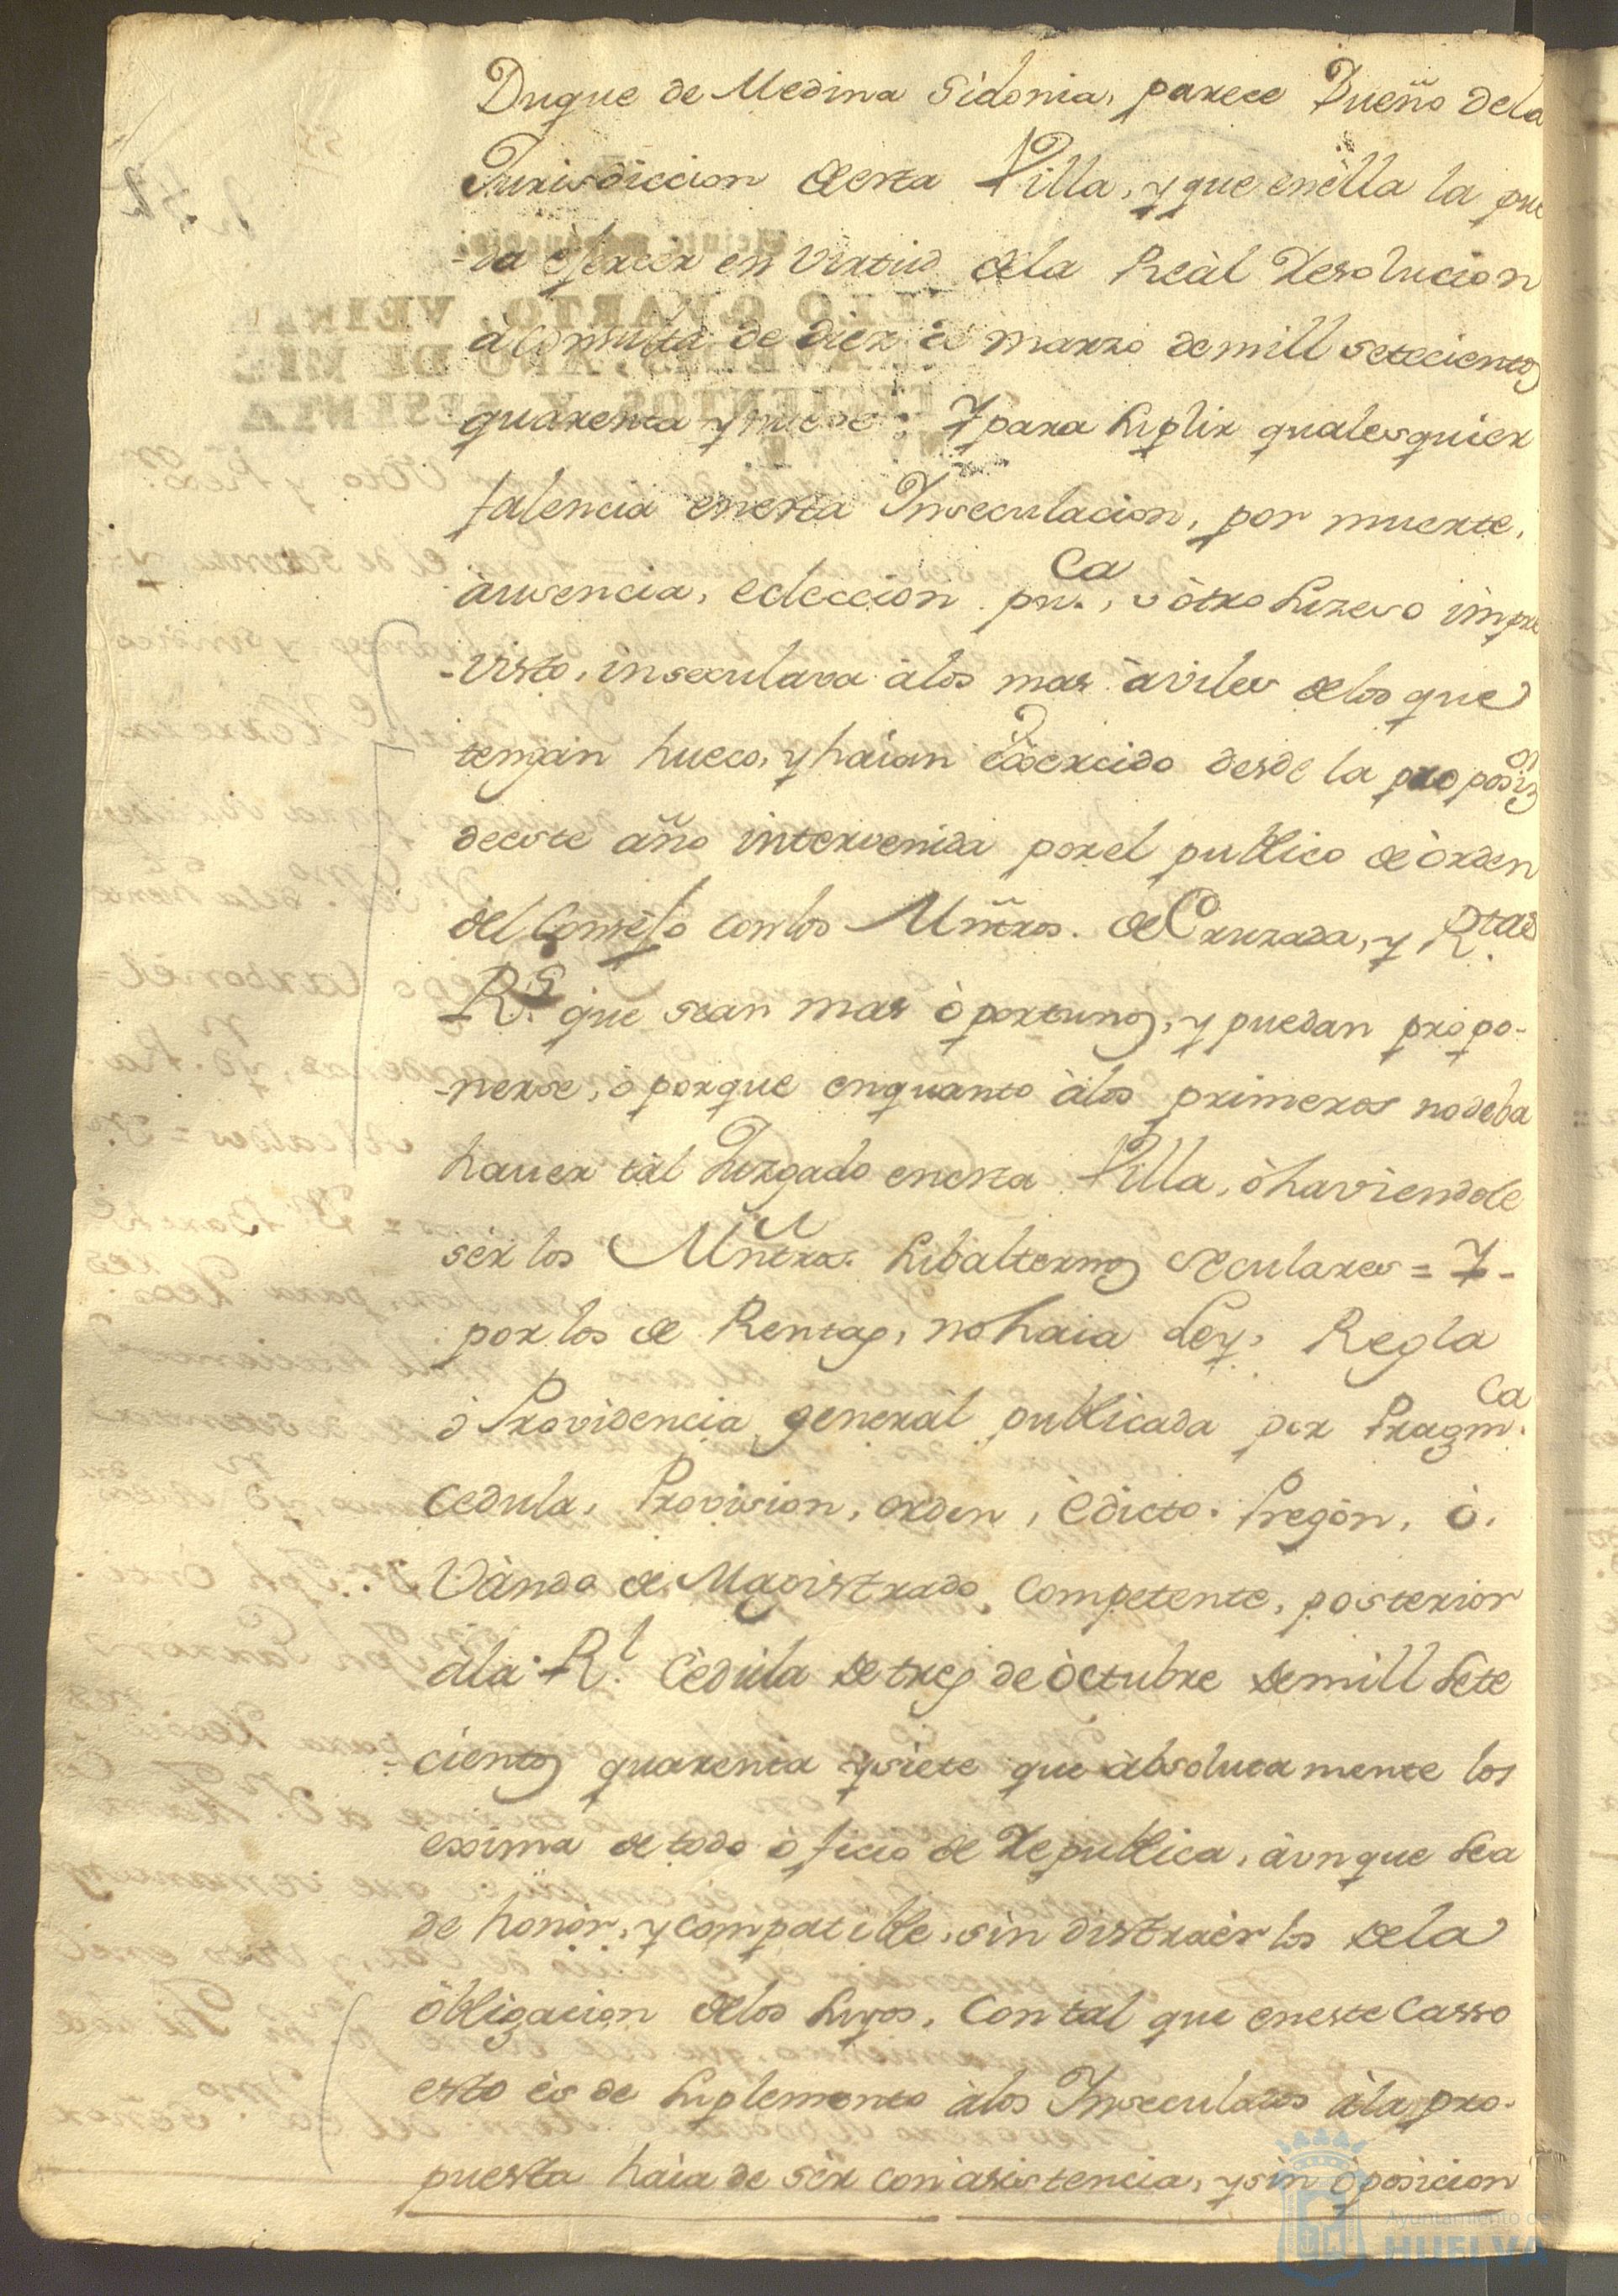 Duque de Medina Sidonia, parece Dueño dela
Jurisdiccion de esta Villa, y que enèlla la pue
-da èjercer en virtud dela Reàl Resolucion
àconsulta de diez de marzo demill setecientos
quarenta ynuebe: Y para suplir qualesquier
falencia enesta Inseculacion, por muerte,
àusencia, eeleccion pu.ca, ù òtro suzeso impre
-visto, inseculava àlos mas àviles delos que
tengan hueco, y haian exercido desde la proposiz.on
deeste año intervenida porel publico de òrden
del Consejo conlos Mñtros. de Cruzada, y R.tas
R.s que sean mas òportunos, y puedan propo-
-nerse, ò porque enquanto àlos primeros nodeba
haver tàl Juzgado enesta Villa, òhaviendole
ser los Mñtros. subalternos seculares = Y -
por los de Rentas, no haia Ley, Regla
ò Providencia general publicada por Pragm.ca
cedula, Provision, orden, èdicto, Pregòn, ò,
Vàndo de Magistrado, Competente, posterior
àla R.l Cèdula de tres de òctubre demill sete
-cientos quarenta ysiete que àbsolutamente los
exsima de todo òficio de Republica, àunque sea
de honòr, y compatible, sin distraèrlos dela
òbligacion delos suyos, Con tal que eneste Casso
esto ès de suplemento àlos Inseculados àla pro-
puesta haia de sèr con asistencia, ysin òposicion
Ayuntamiento de
HUELVA